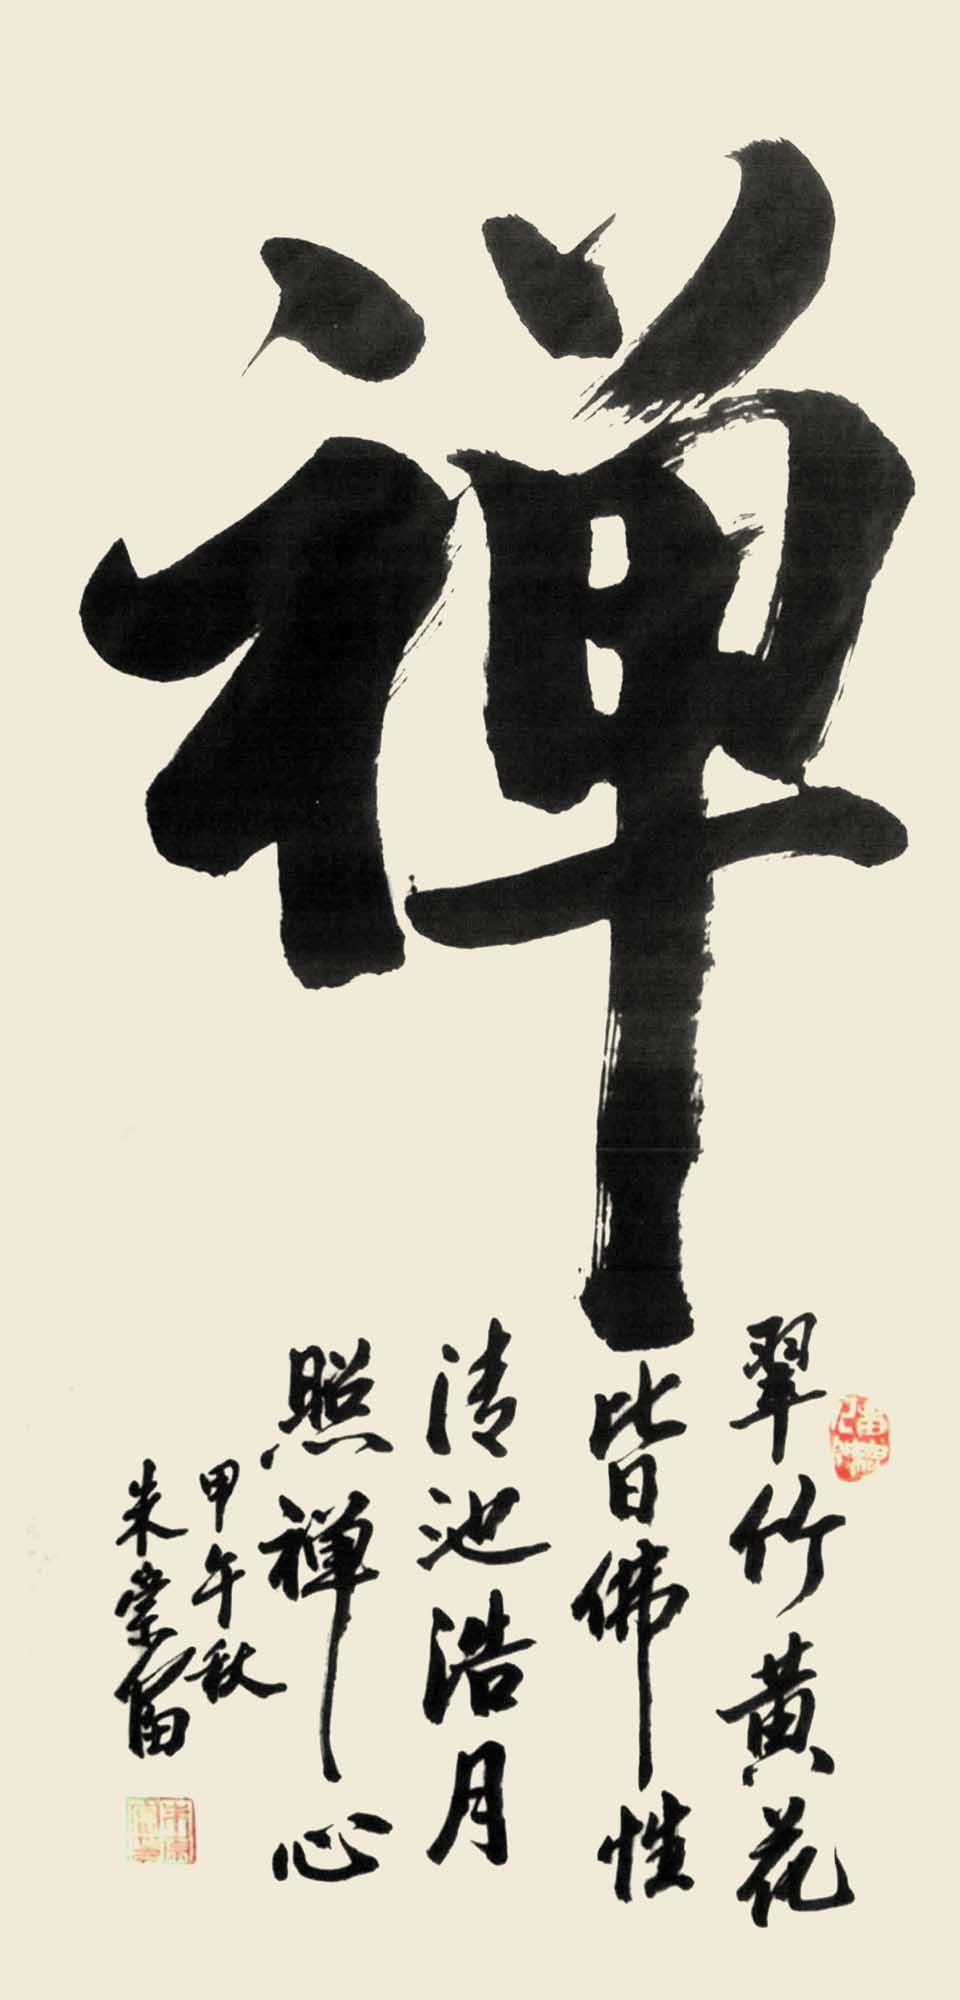 禅
翠竹黄花
皆佛性
清池浩月
照禅心
甲午秋
朱崇